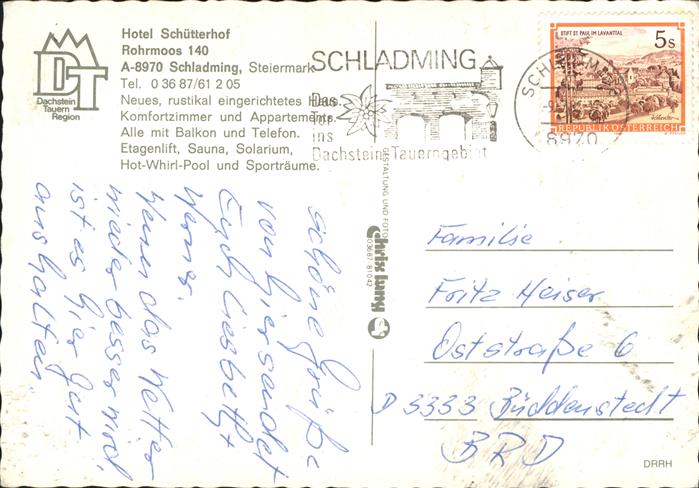 Hotel Schütterhof
Rohrmoos 140
A-8970 Schladming, Steiermark
Tel. 0 36 87/61 2 05
Neues, rustikal eingerichtetes Haus.
Komfortzimmer und Appartements.
Alle mit Balkon und Telefon.
Etagenlift, Sauna, Solarium,
Hot-Whirl-Pool und Sporträume.
DT
Dachstein
Tauern
Region
SCHLADMING
Das
Tor
ins
Dachstein-Tauerngebiet
STIFT ST. PAUL IM LAVANTTAL
5s
REPUBLIK ÖSTERREICH
SCHLADMING
8970
GESTALTUNG UND FOTO
chris lung
03687/81042
schöne Grüße
von hier sendet
Euch Liesbeth +
Werner.
Wenn das Wetter
wieder besser wird,
ist es hier gut
aushalten.
Familie
Fritz Heiser
Oststraße 6
D 3333 Büddenstedt
BRD
DRRH